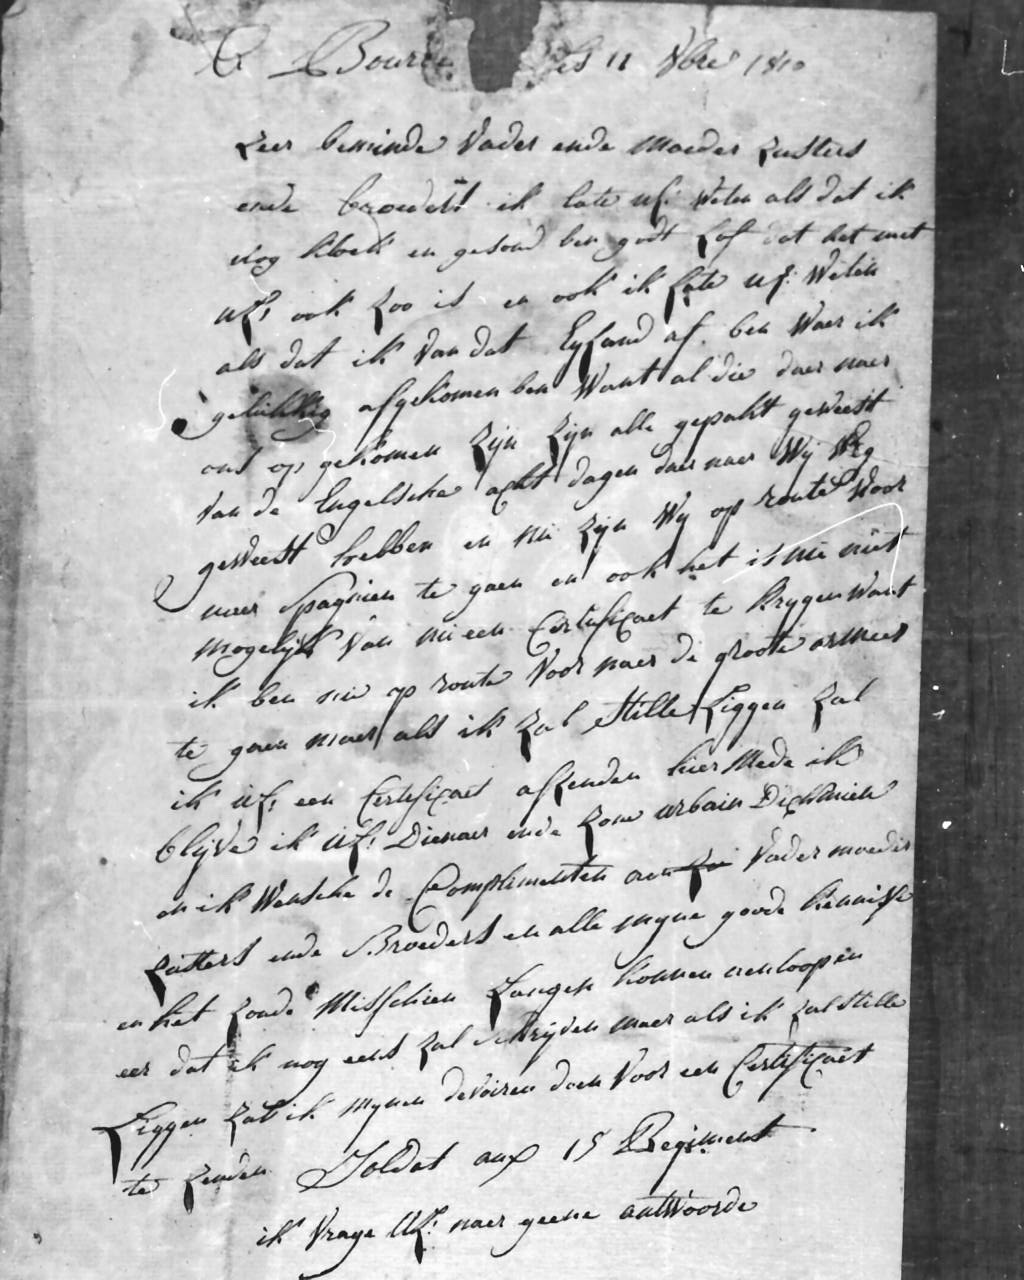 A Bour les 11 Xbre 1810
Zeer beminde Vader ende moeder zusters
ende broeders ik late ul: weten als dat ik
nog kloek en gesond ben godt lof dat het met
ul: ook zoo is en ook ik late ul: weten
als dat ik van dat Eyland af ben waer ik
gelukkig afgekomen ben want al die daer naer
ons op gekomen zijn zijn alle gepakt geweest
van de Engelsche acht dagen daer naer wij weg
geweest hebben en nu zijn wij op route voor
naer Spagnien te gaen en ook het is nu niet
mogelijk van nu een Certificaet te krygen want
ik ben nu op route voor naer de groote armeer
te gaen maer als ik zal stille liggen zal
ik ul: een Certificaet afzenden hier mede ik
blijve ik ul: Dienaer ende zone urbain
en ik wensche de Complimenten aen Vader moeder
zusters ende Broeders en alle myne goede kennisse
en het zoude misschien langen konnen aenloopen
eer dat ik nog eens zal schrijven maer als ik zal stille
liggen zal ik mynen devoiren doen voor een Certificaet
te zenden Soldat aux 15 Regiment
ik vrage ul: naer geene antwoorde